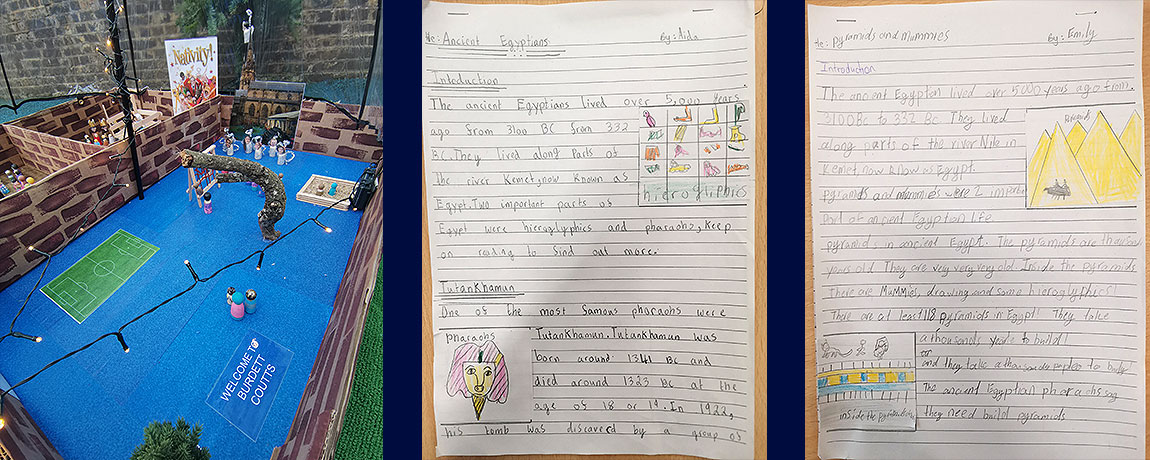 Nativity!
WELCOME TO
BURDETT
COUTTS
Ancient Egyptians By: Aida
Intoduction
The ancient Egyptians lived over 5,000 years
ago from 3100 BC from 332
BC. They lived along parts of
the river Kemet, now known as
Egypt. Two important parts of
Egypt were hieroglyphics and pharaohs, Keep
on reading to find out more.
hierogliphics
Tutankhamun
One of the most famous pharaohs were
pharaohs
Tutankhamun. Tutankhamun was
born around 1341 BC and
died around 1323 BC at the
age of 18 or 19. In 1922,
his tomb was discoverd by a group of
Pyramids and mummies By: Emily
Introduction
The ancient Egyption lived over 5000 years ago from
3100 BC to 332 BC. They lived
along parts of the river Nile in
Kemet now know as Egypt.
pyramids and mummies were 2
part of ancient Egyption life.
pyramids in ancient Egypt. The pyramids are
years old. They are very very very old. Inside the pyramids
There are Mummies, drawing and some hieroglyphics!
There are at least 118 pyramids in Egypt! They take
a thousands years to build!
or
and they take a thousands to
The ancient Egyptian pharaohs say
they need build pyramids
inside the